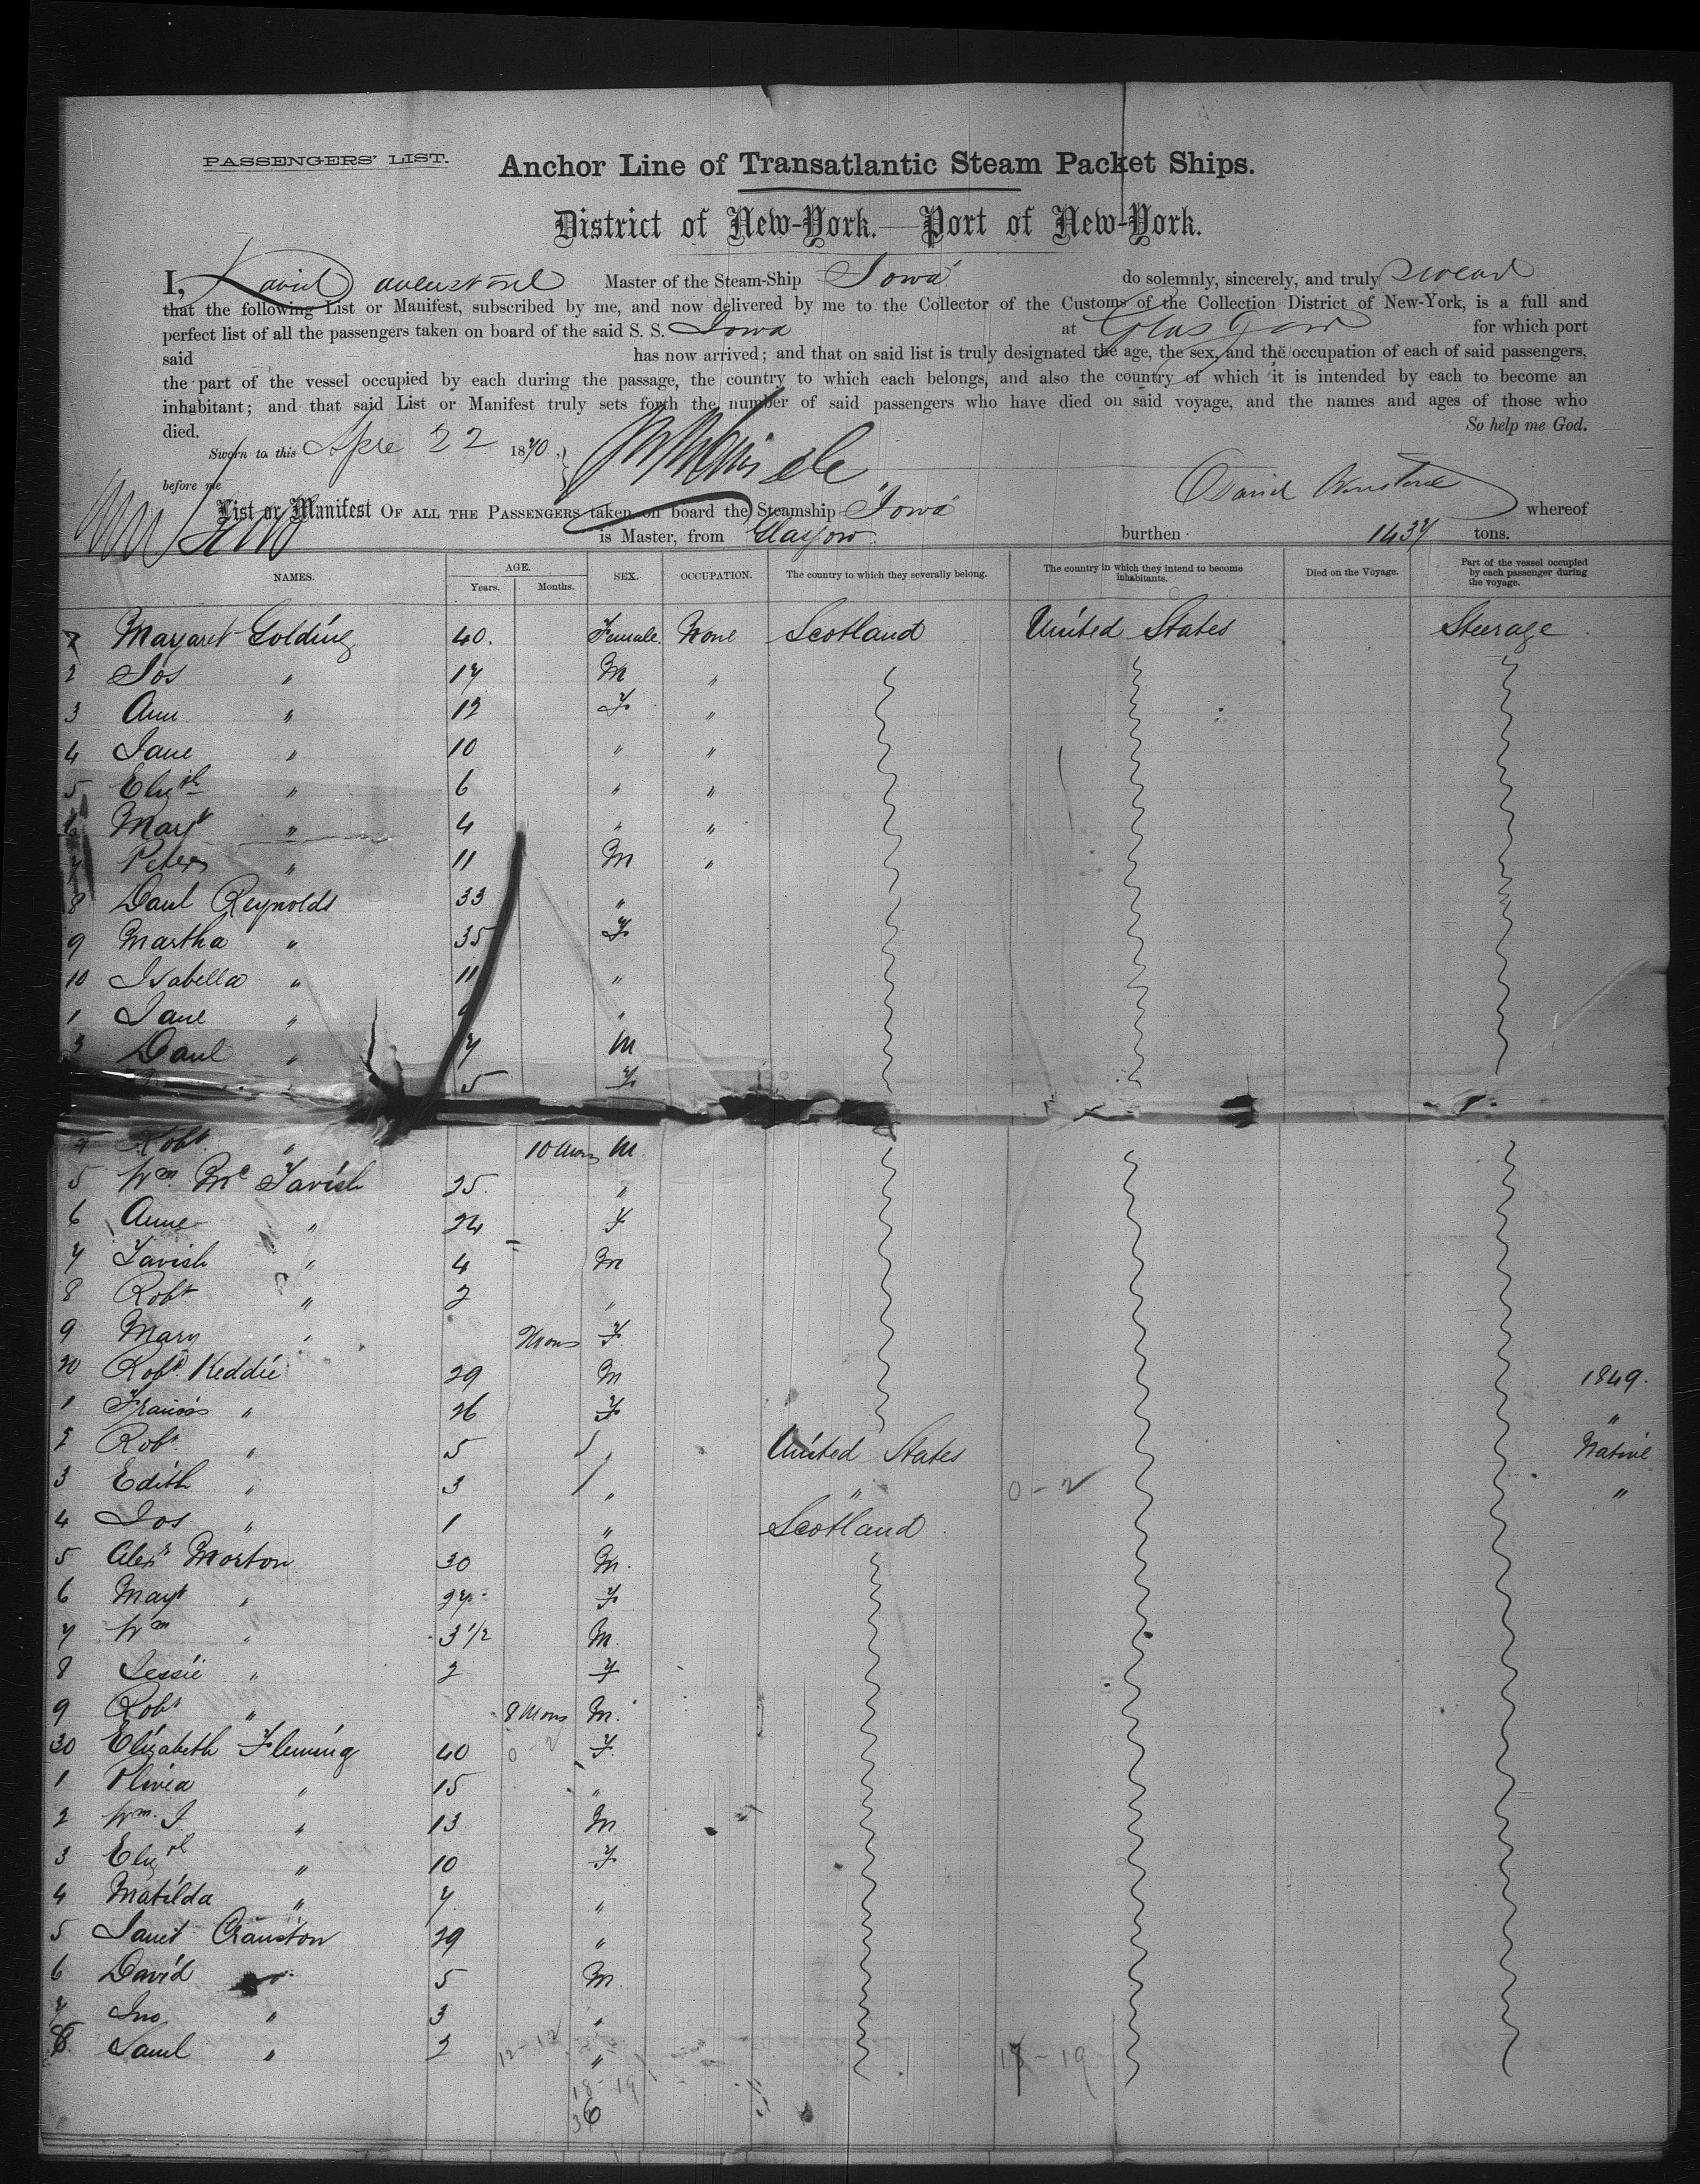 PASSENGERS' LIST. Anchor Line of Transatlantic Steam Packet Ships.
District of New-York.—Port of New-York.
I, David Master of the Steam-Ship Iowa do solemnly, sincerely, and truly swear
that the following List or Manifest, subscribed by me, and now delivered by me to the Collector of the Customs of the Collection District of New-York, is a full and
perfect list of all the passengers taken on board of the said S. S. Iowa at Glasgow for which port
said has now arrived; and that on said list is truly designated the age, the sex, and the occupation of each of said passengers,
the part of the vessel occupied by each during the passage, the country to which each belongs, and also the country of which it is intended by each to become an
inhabitant; and that said List or Manifest truly sets forth the number of said passengers who have died on said voyage, and the names and ages of those who
died. So help me God.
Sworn to this 22 1870
before me David
List or Manifest OF ALL THE PASSENGERS taken on board the Steamship Iowa whereof
is Master, from Glasgow burthen 1437 tons.
NAMES. AGE. Years. Months. SEX. OCCUPATION. The country to which they severally belong. The country in which they intend to become inhabitants. Died on the Voyage. Part of the vessel occupied by each passenger during the voyage.
Margaret Golding 40. Female None Scotland United States Steerage
2 Jos " 17 M "
3 Ann " 12 F "
4 Jane " 10 " "
5 Elizth " 6 " "
6 Mart " 4 " "
7 Peter " 11 M "
8 Danl Reynolds 33 "
9 Martha " 35 F
10 Isabella " 11 "
1 Jane " "
3 Danl " 7 M
5 F
4 Robt " 10 Mons M
5 Wm McTavish 25. "
6 Anne " 24 F
7 Tavish " 4 M
8 Robt " 2 "
9 Mary " Mons F
20 Robt Keddie 29 M 1849.
1 Francis " 26 F "
2 Robt " 5 " United States Native
3 Edith " 3 " " 0-2 "
4 Jos " 1 " Scotland
5 Alexr Morton 30 M.
6 Mart " 27 F
7 Wm " 3 1/2 M.
8 Jessie " 2 F
9 Robt " 8 Mons M.
30 Elizabeth Fleming 40 0-2 F.
1 Olivia " 15 "
2 Wm J " 13 M
3 Elizth " 10 F
4 Matilda " 7 "
5 Janet Cranston 29 "
6 David " 5 M
7 Jno " 3 "
8 Saml " 2 12-12 " 18-19
18-19
36